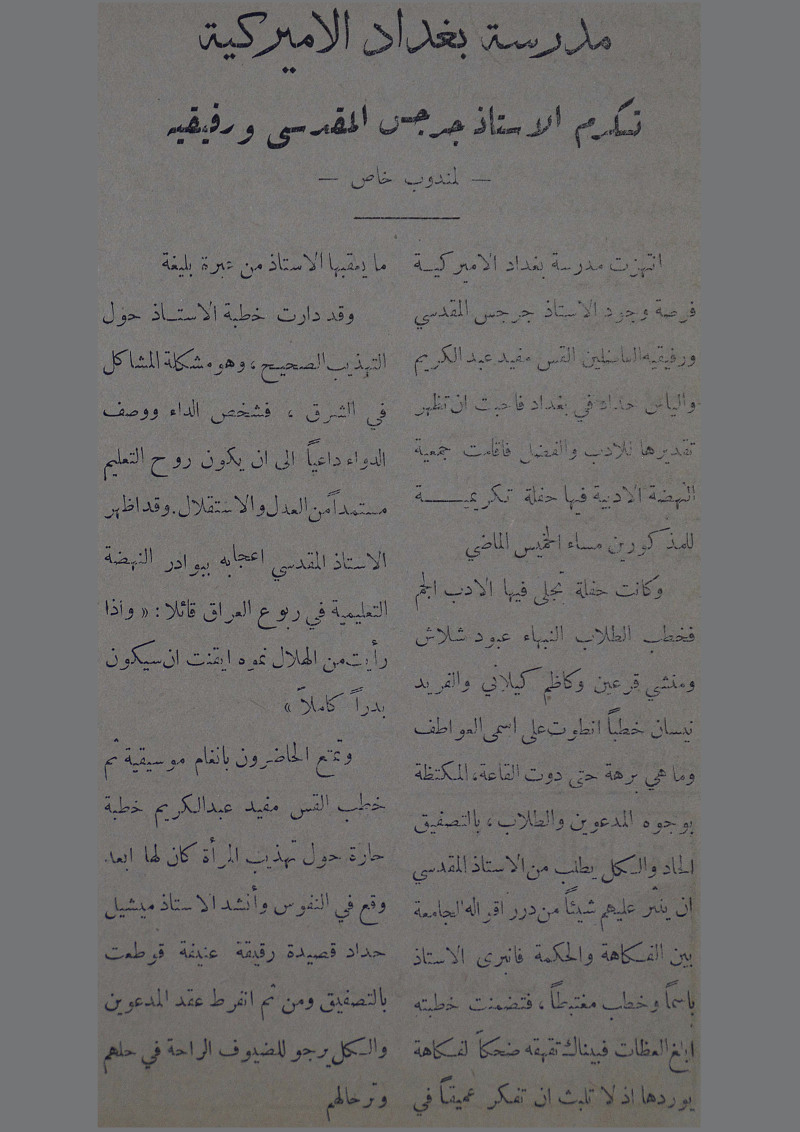 مدرسة بغداد الاميركية
تكرم الاستاذ جرجس المقدسي ورفيقيه
— لمندوب خاص —
انتهزت مدرسة بغداد الاميركيـة
فرصة وجود الاستاذ جرجس المقدسي
ورفيقيه الفاضلين القس مفيد عبد الكريم
والياس حداد في بغداد فاحبت ان تظهر
تقديرها للادب والفضل فاقامت جمعية
النهضة الادبية فيها حفلة تكريميـــة
للمذكورين مساء الخميس الماضي
وكانت حفلة تجلى فيها الادب الجم
فخطب الطلاب النبهاء عبود شلاش
ومنشي قرعين وكاظم كيلاني والفريد
نيسان خطباً انطوت على اسمى العواطف
وما هي برهة حتى دوت القاعة، المكتظة
بوجوه المدعوين والطلاب، بالتصفيق
الحاد والكل يطلب من الاستاذ المقدسي
ان ينثر عليهم شيئاً من درر اقواله الجامعة
بين الفكاهة والحكمة فانبرى الاستاذ
باسماً وخطب مغتبطاً، فتضمنت خطبته
ابلغ العظات فبيناك تقهقه ضحكاً لفكاهة
يوردها اذ لا تلبث ان تفكر عميقاً في
ما يعقبها الاستاذ من عبرة بليغة
وقد دارت خطبة الاستـاذ حول
التهذيب الصحيح، وهو مشكلة المشاكل
في الشرق، فشخص الداء ووصف
الدواء داعياً الى ان يكون روح التعليم
مستمداً من العدل والاستقلال. وقد اظهر
الاستاذ المقدسي اعجابه ببوادر النهضة
التعليمية في ربوع العراق قائلا: «واذا
رأيت من الهلال نموه ايقنت ان سيكون
بدراً كاملاً»
وتمتع الحاضرون بانغام موسيقية ثم
خطب القس مفيد عبد الكريم خطبة
حارة حول تهذيب المرأة كان لها ابعد
وقع في النفوس وأنشد الاستاذ ميشيل
حداد قصيدة رقيقة عنيفة قوطعت
بالتصفيق ومن ثم انفرط عقد المدعوين
والكل يرجو للضيوف الراحة في حلهم
وترحالهم